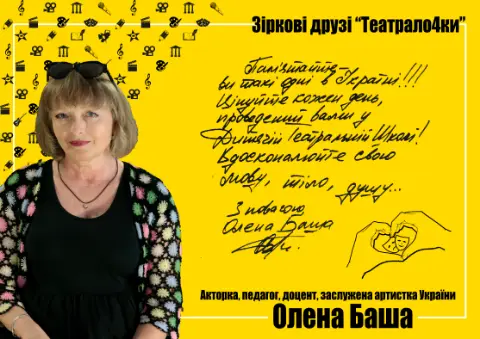 Зіркові друзі “Театрало4ки”
Пам'ятайте,
ви такі одні в Україні!!!
Цінуйте кожен день,
проведений вами у
Дитячій Театральній Школі!
Вдосконалюйте свою
мову, тіло, душу...
З повагою
Олена Баша
Акторка, педагог, доцент, заслужена артистка України
Олена Баша